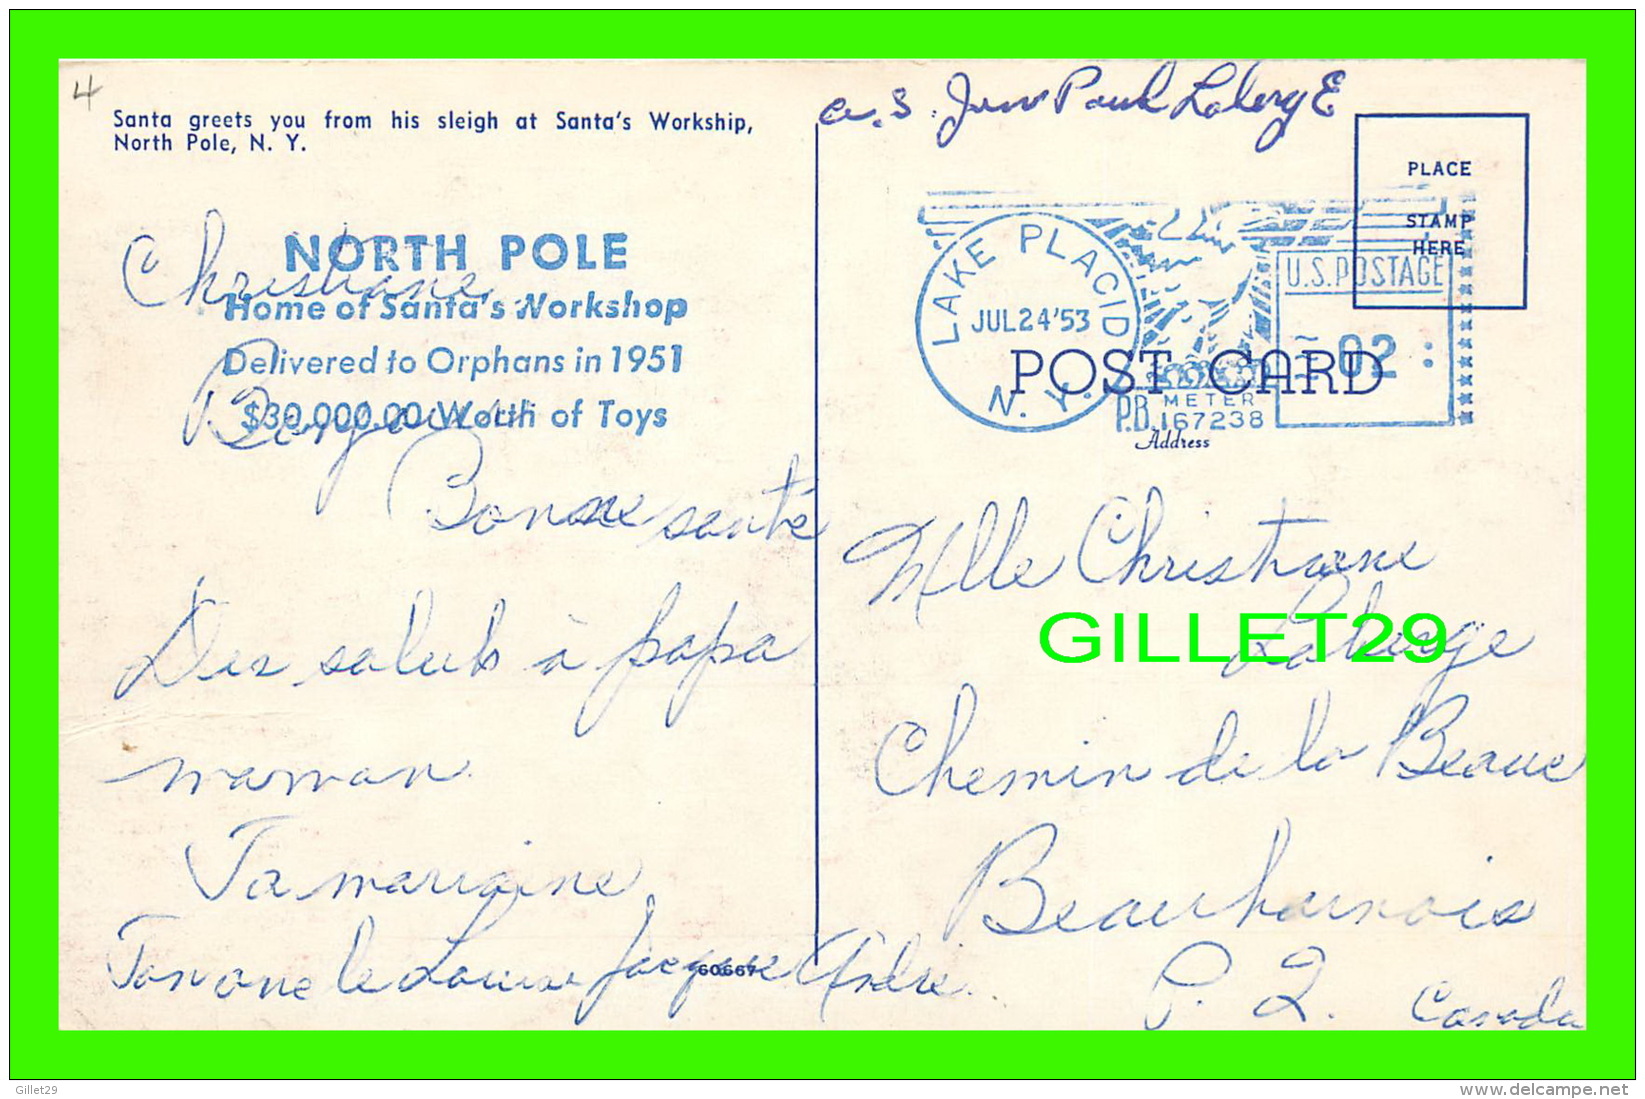 4
Santa greets you from his sleigh at Santa's Workship,
North Pole, N. Y.
NORTH POLE
Home of Santa's Workshop
Delivered to Orphans in 1951
$30,000.00 Worth of Toys
Christiane
Bonjour
Bonne santé
Des saluts à papa
maman
Ta marraine
Ton oncle Louis Jacques André
60667
a.s. Jean Paul LabergE
PLACE
STAMP
HERE
LAKE PLACID
JUL 24 '53
N. Y.
U.S. POSTAGE
02
P.B. METER
167238
POST CARD
Address
Mlle Christiane
Laberge
GILLET29
Chemin de la Beauce
Beauharnois
P. Q. Canada
Gillet29
www.delcampe.net